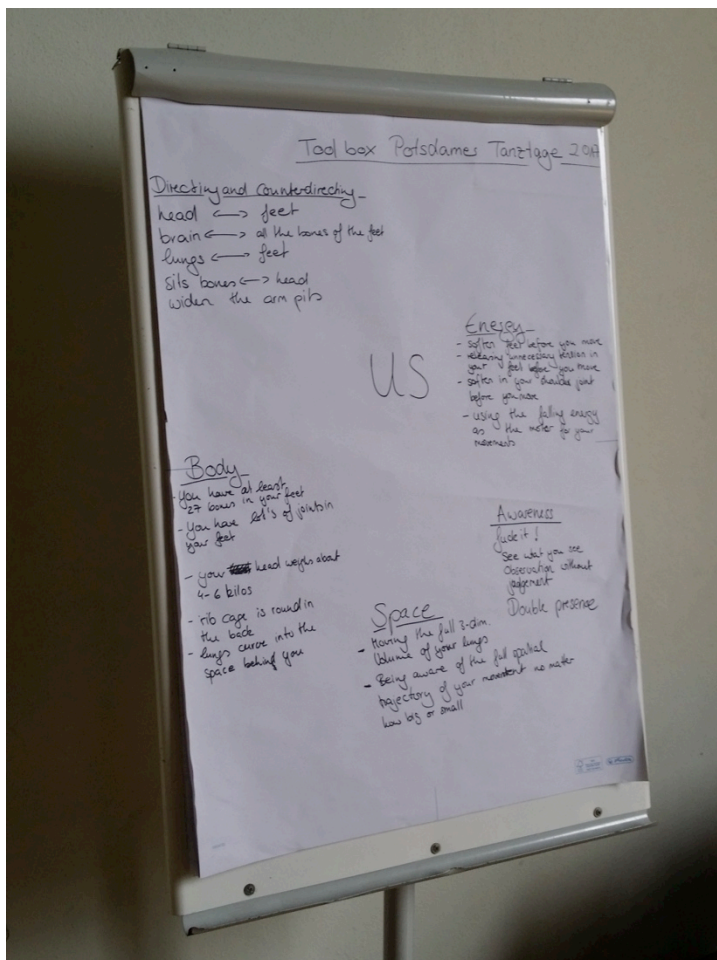 Toolbox Potsdamer Tanztage 2017
Directing and Counterdirecting
head <--> feet
brain <--> all the bones of the feet
lungs <--> feet
sits bones <--> head
widen the arm pits
US
Energy
- soften feet before you move
- releasing unnecessary tension in
your feet before you move
- soften in your shoulder joint
before you move
- using the falling energy
as the motor for your
movements
Body
- You have at least
27 bones in your feet
- You have lot's of joints in
your feet
- your head weighs about
4-6 kilos
- rib cage is round in
the back
- lungs curve into the
space behind you
Awareness
fuck it!
See what you see
Observation without
judgement
Double presence
Space
- Having the full 3-dim.
Volume of your lungs
- Being aware of the full spatial
trajectory of your movement no mater
how big or small